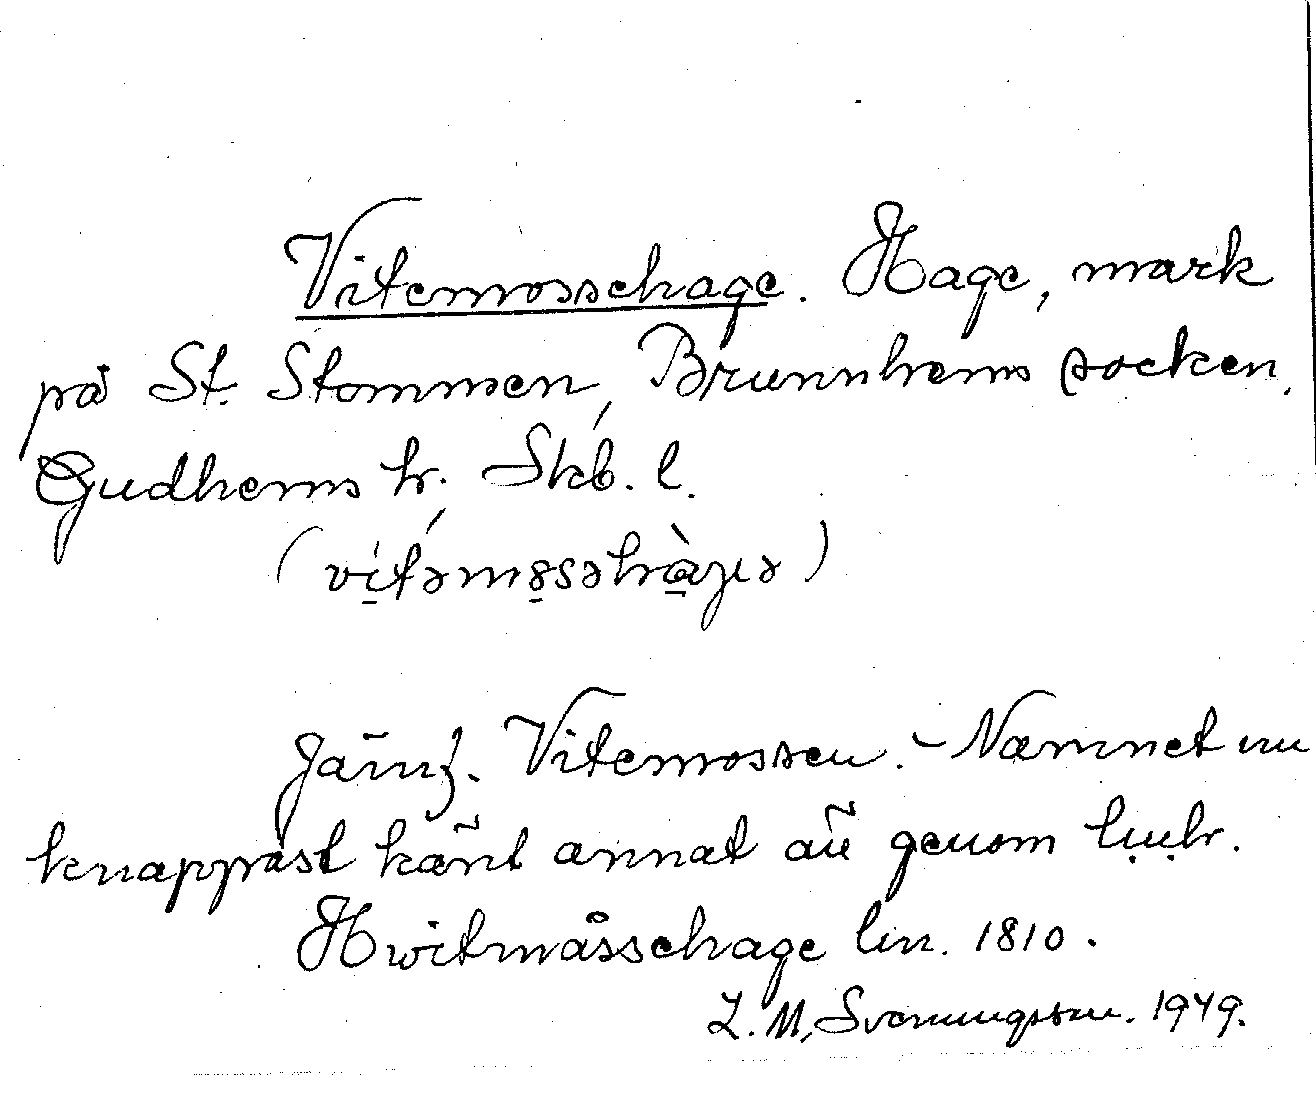 Vitemossehage. Hage, mark
på St. Stommen, Brunnhems socken,
Gudhems hr, Skb. l.
(vi̱təmo̱səhà̱γə)
Jämf. Vitemossen. – Namnet nu
knappast känt annat än genom
Hwitmåssehage lm. 1810.
L. M. Svenungsson. 1949.